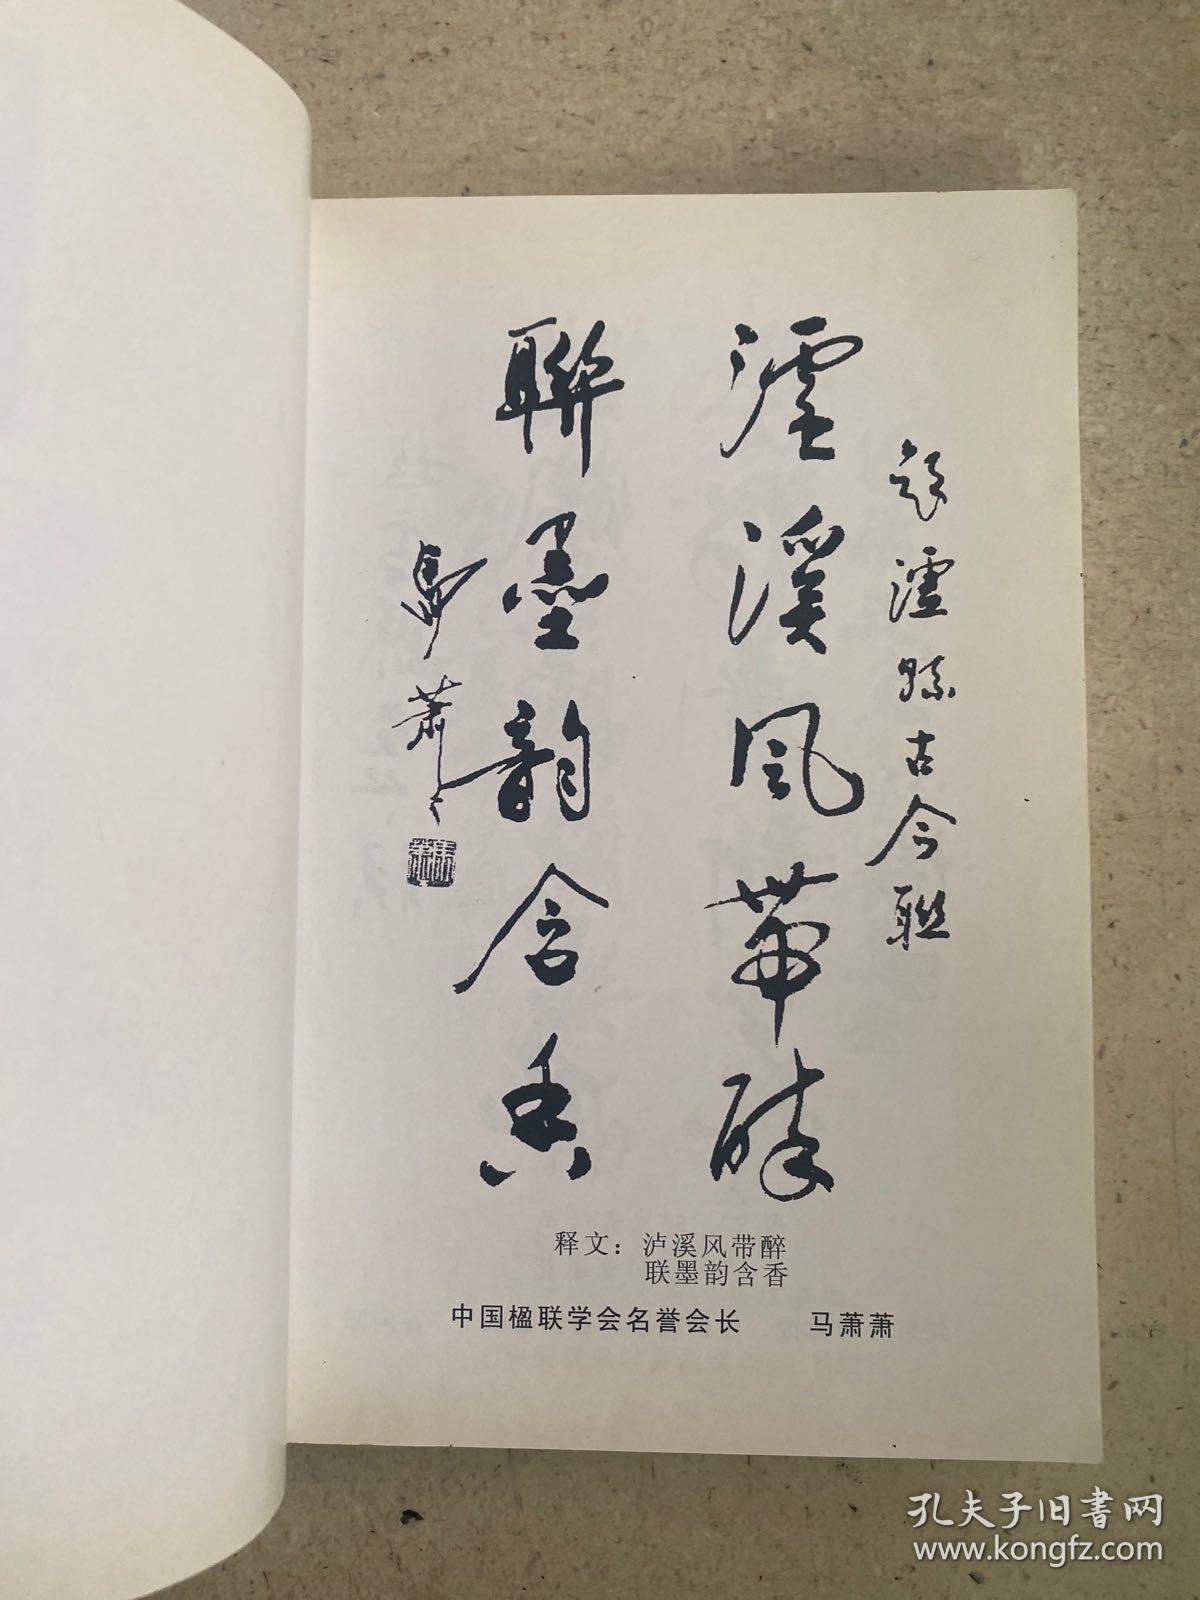 题瀘縣古今聯
瀘溪風帶醉
聯墨韵含香
馬蕭蕭
释文：泸溪风带醉
联墨韵含香
中国楹联学会名誉会长 马萧萧
孔夫子旧书网
www.kongfz.com